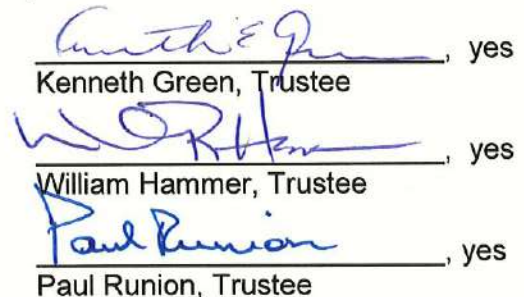 , yes
Kenneth Green, Trustee
William R Hammer, yes
William Hammer, Trustee
Paul Runion, yes
Paul Runion, Trustee